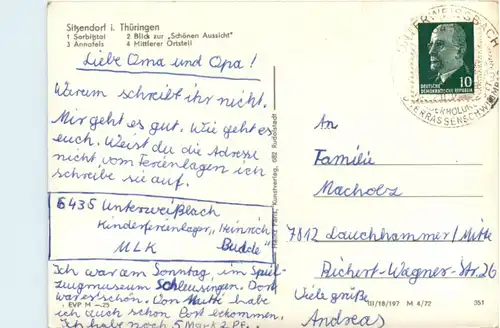 Sitzendorf i. Thüringen
1 Sorbitztal 2 Blick zur „Schönen Aussicht"
3 Annafels 4 Mittlerer Ortsteil
Liebe Oma und Opa!
Warum schreibt ihr nicht.
Mir geht es gut. Wie geht es
euch. Weist du die Adresse
nicht vom Ferienlagen ich
schreibe sie auf.
6435 Unterweißbach
Kinderferienlager „Heinrich
MLK Budde"
Ich war am Sonntag, im Spiel-
zeugmuseum Schleusingen. Dort
war es schön. Von Mutti habe
ich auch schon Post bekommen.
Ich habe noch 5 Mark 2 Pf.
EVP M -.25
682 Rudolstadt
DEUTSCHE
DEMOKRATISCHE REPUBLIK
10
An
Familie
Macholz
7812 Lauchhammer/Mitte
Richert-Wagner-Str. 26
Viele grüße
III/18/197 M 4/72 051
Andreas